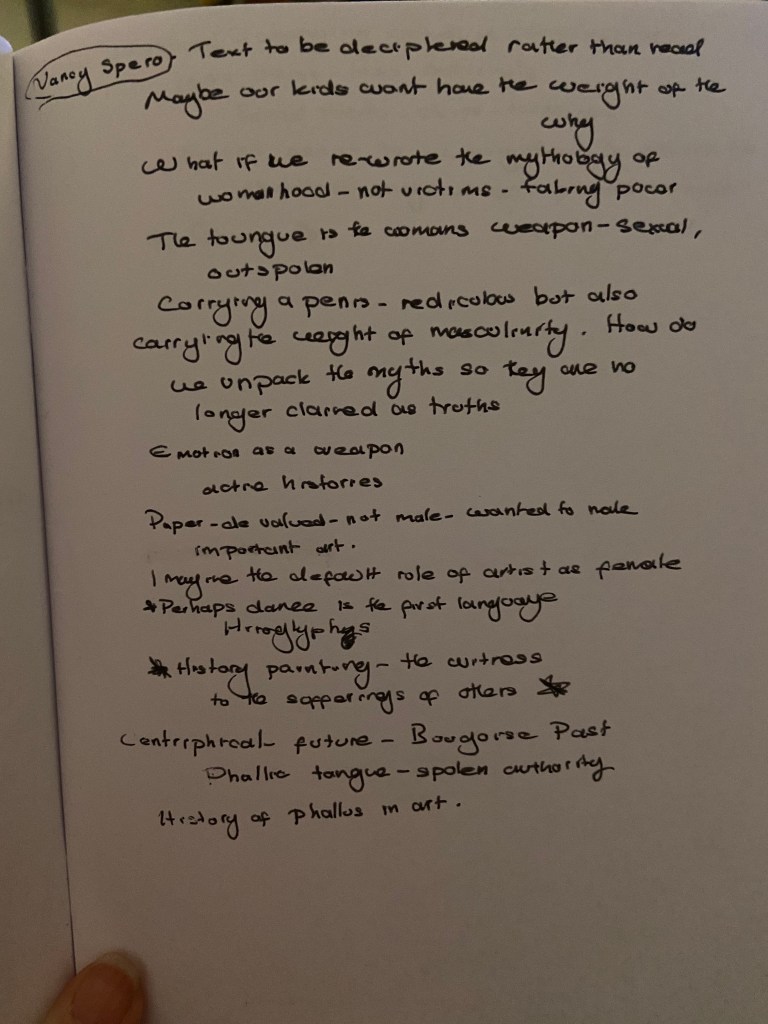 Nancy Spero. Text to be deciphered rather than read
Maybe our kids wont have the weight of the
why
What if we re-wrote the mythology of
womanhood - not victims - taking pocor
The toungue is the womans weapon - sexual,
outspoken
Carrying a penis - rediculous but also
carrying the weight of masculinity. How do
we unpack the myths so they are no
longer claimed as truths
Emotion as a weapon
active histories
Paper - de valued - not male - wanted to make
important art.
Imagine the default role of artist as female
*Perhaps dance is the first language
Hieroglyphys
* History painting - the witness
to the sufferings of others *
Centriphical future - Bougoise Past
Phallic tongue - spoken authority
History of phallus in art.